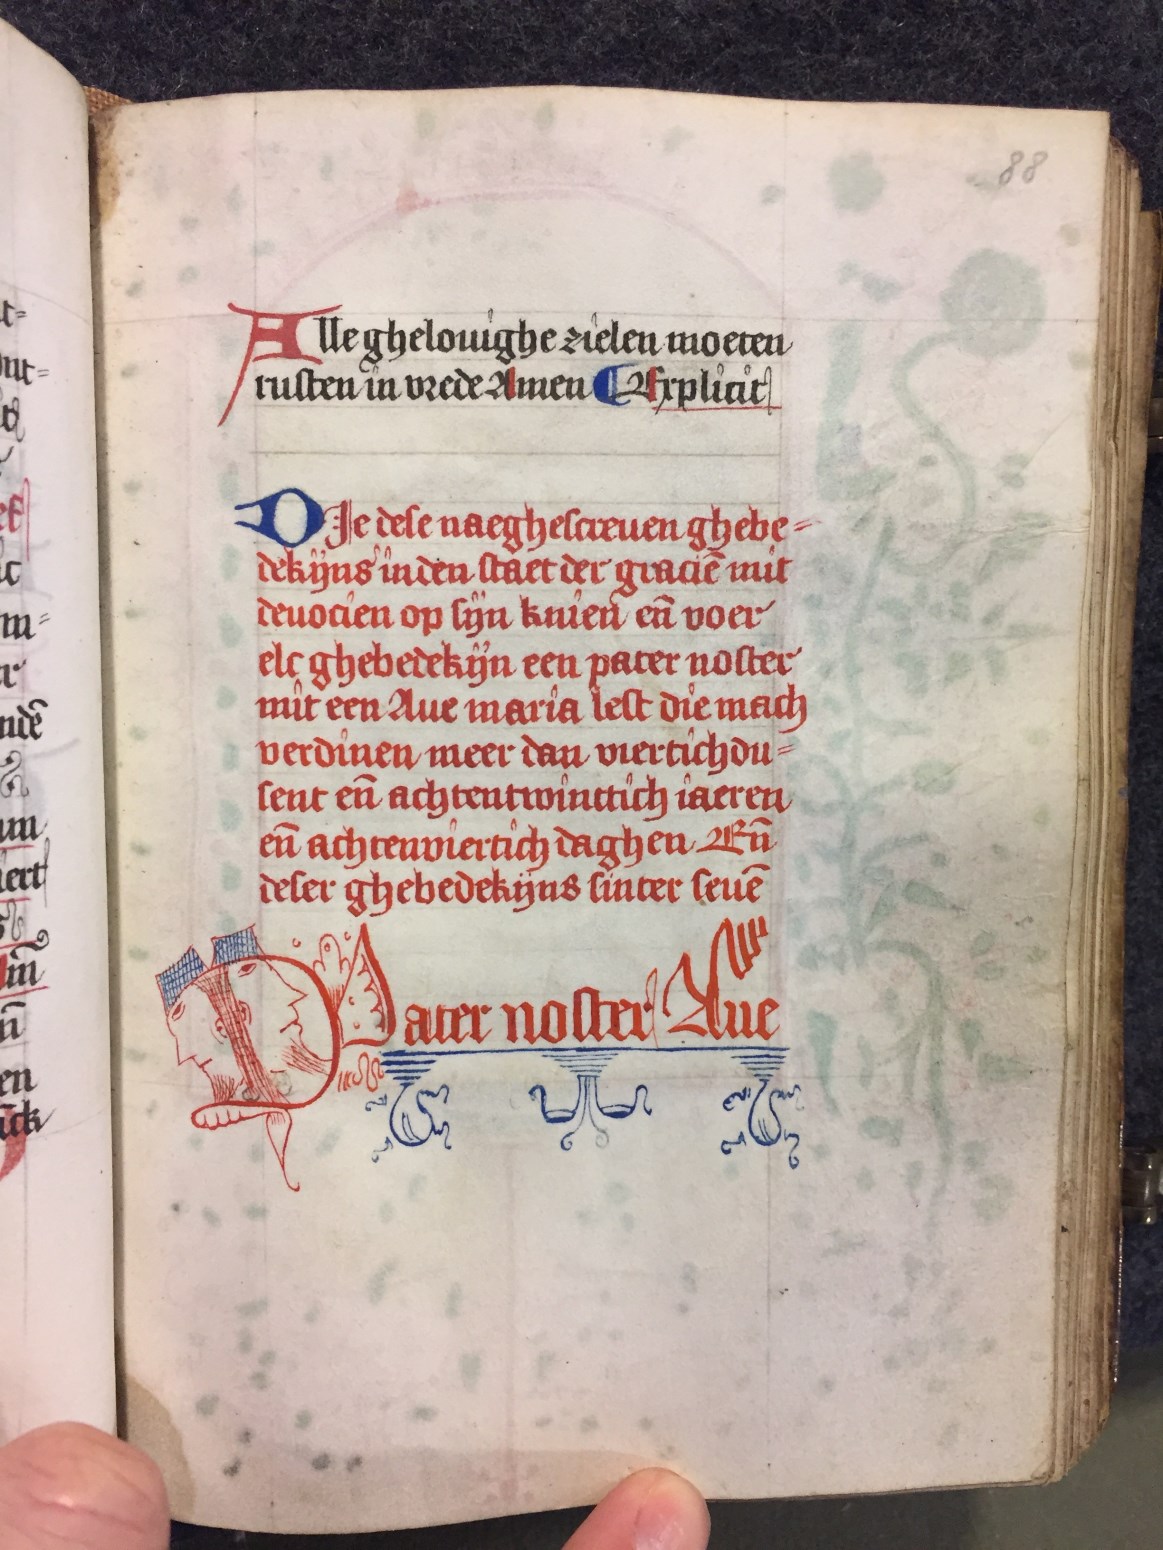 88
Alle ghelouighe zielen moeten
rusten in vrede Amen Explicit
DIe dese naeghescreuen ghebe=
dekijns in den staet der graciē mit
deuocien op sijn knien en̄ voer
elc ghebedekijn een pater noster
mit een Aue maria lest die mach
verdinen meer dan viertich du=
sent en̄ achtentwinttich iaeren
en̄ achtenviertich daghen En̄
deser ghebedekijns sinter seuē
Pater noster Aue